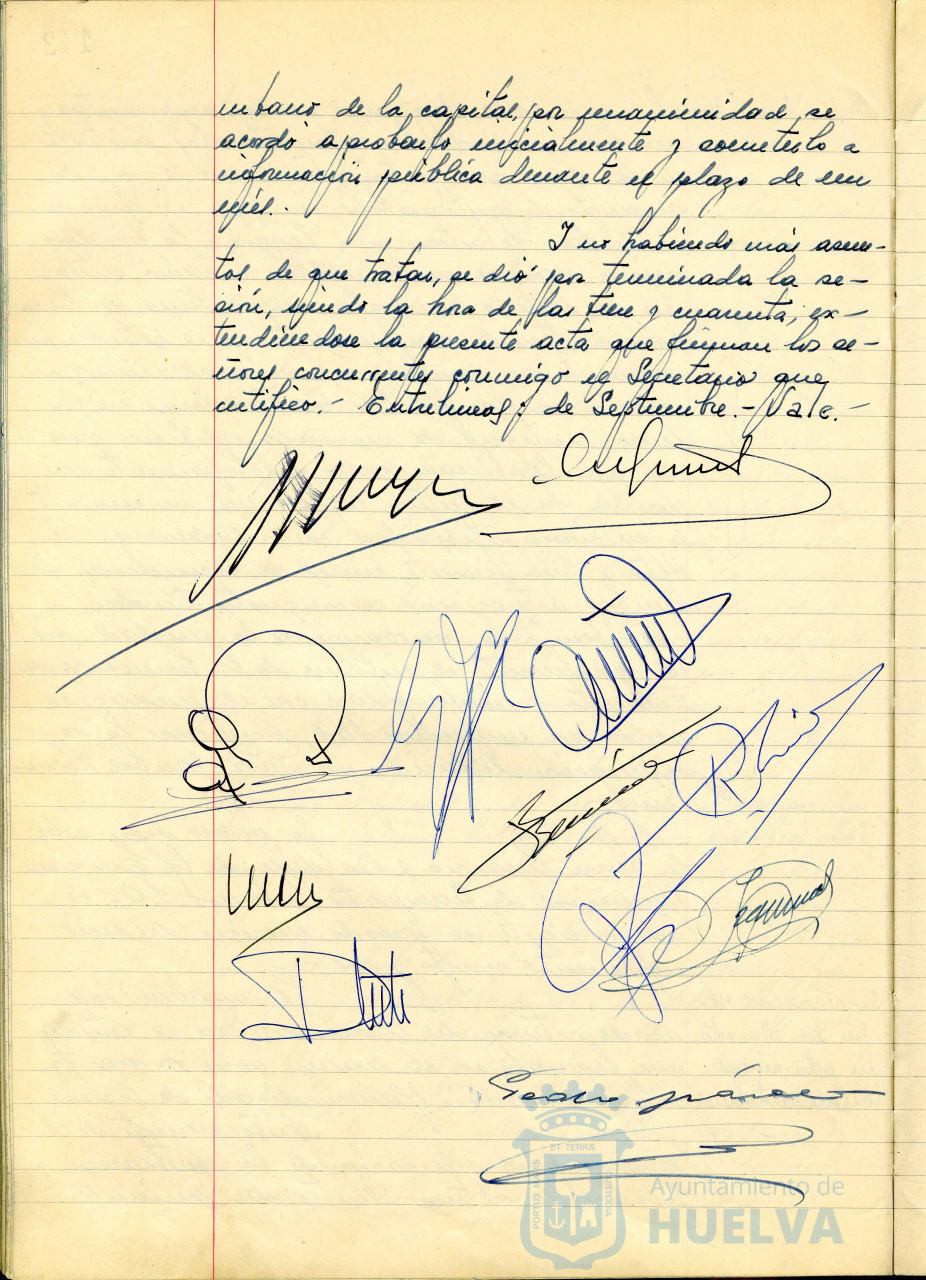 urbano de la capital, por unanimidad se
acordó aprobarlo inicialmente y someterlo a
información pública durante el plazo de un
mes.-
Y no habiendo más asun-
tos de que tratar, se dió por terminada la se-
sión, siendo la hora de las trece y cuarenta, ex-
tendiendose la presente acta que firman los se-
ñores concurrentes conmigo el Secretario que
certifico.- Entrelineas: de Septiembre.- Vale.-
ET TERRÆ
PORTUS MARIS
CUSTODIA
Ayuntamiento de
HUELVA